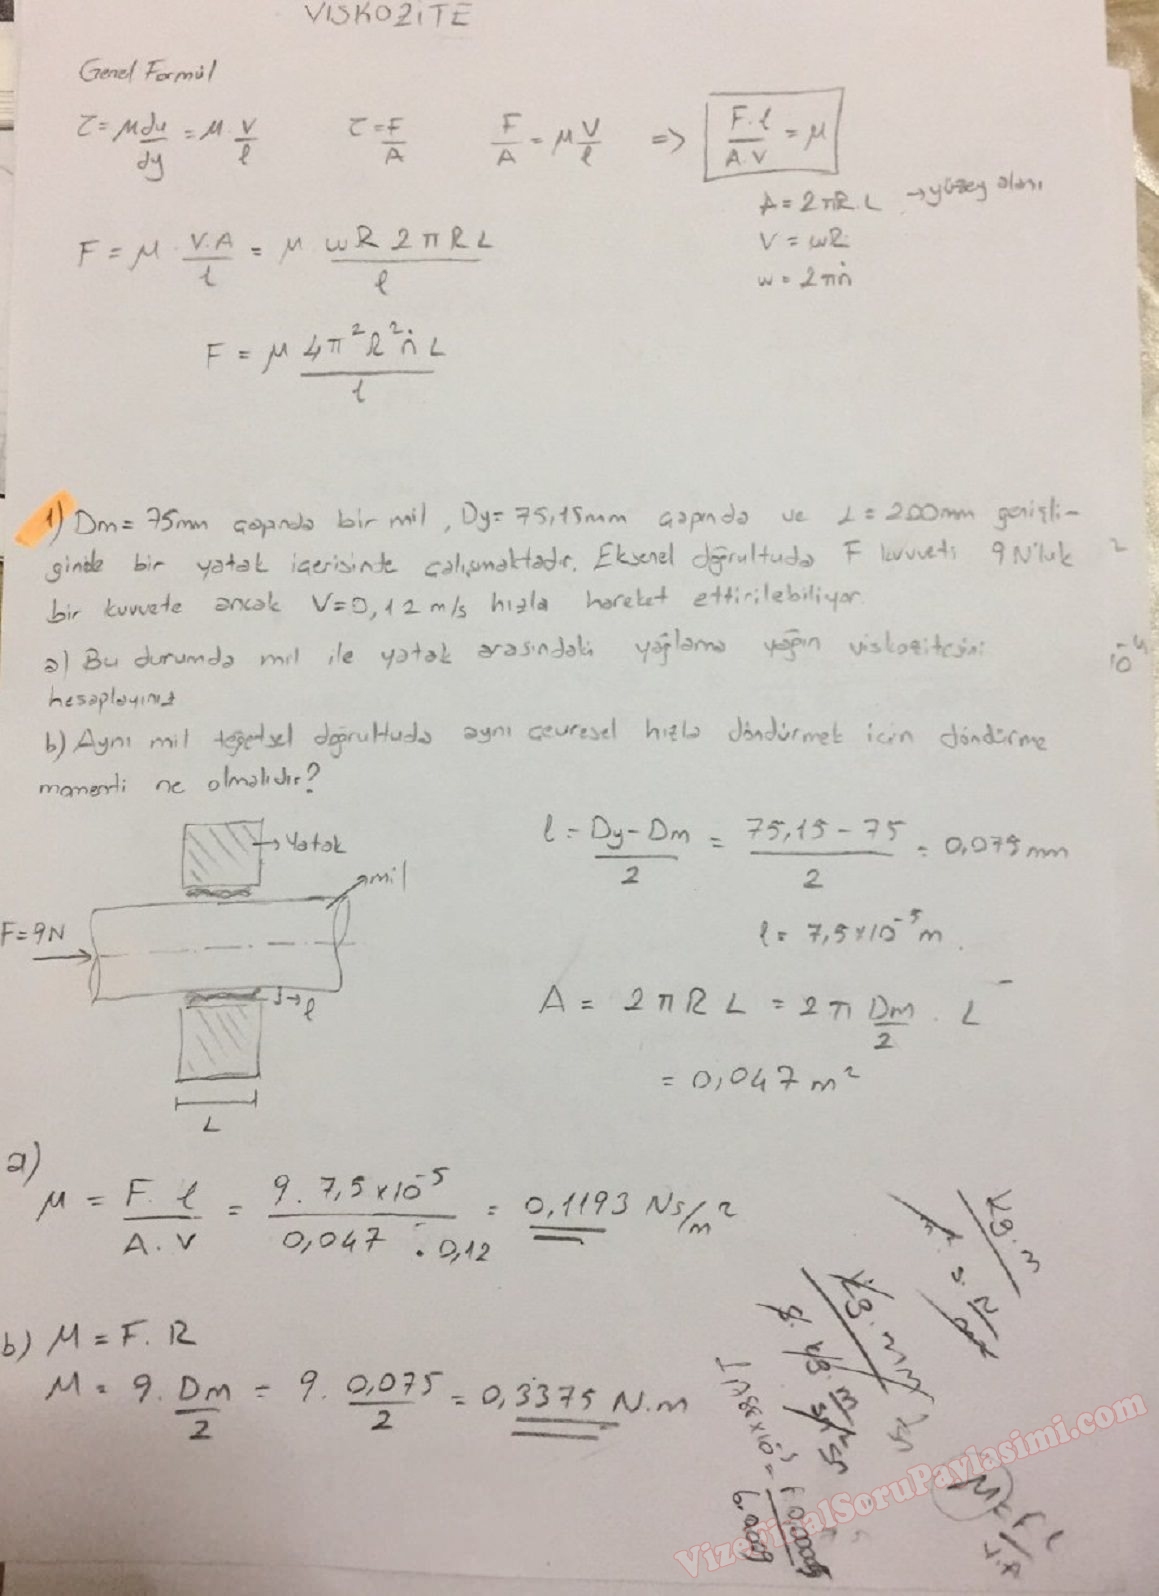 VISKOZİTE
Genel Formül
τ = μ du/dy = μ . V/l    τ = F/A    F/A = μ V/l => F.l/A.V = μ
A = 2πR.L → yüzey alanı
V = ωR
ω = 2πṅ
F = μ . V.A/l = μ ωR2πRL/l
F = μ 4π²R²ṅL/l
1) Dm = 75mm çapında bir mil, Dy = 75,15mm çapında ve L = 200mm genişli-
ğinde bir yatak içerisinte çalışmaktadır. Eksenel doğrultuda F kuvveti 9N'luk
bir kuvvete ancak V=0,12 m/s hızla hareket ettirilebiliyor.
a) Bu durumda mil ile yatak arasındaki yağlama yağın viskozitesini
hesaplayınız
b) Aynı mil teğetsel doğrultuda aynı çevresel hızla döndürmek için döndürme
momenti ne olmalıdır?
→ Yatak
mil
F=9N
l
L
l = Dy - Dm/2 = 75,15 - 75/2 = 0,075 mm
l = 7,5x10⁻⁵ m.
A = 2πRL = 2π Dm/2 . L
= 0,047 m²
a)
μ = F.l/A.V = 9. 7,5x10⁻⁵/0,047 . 0,12 = 0,1193 Ns/m²
b) M = F.R
M = 9. Dm/2 = 9. 0,075/2 = 0,3375 N.m
VizeFinalSoruPaylasimi.com